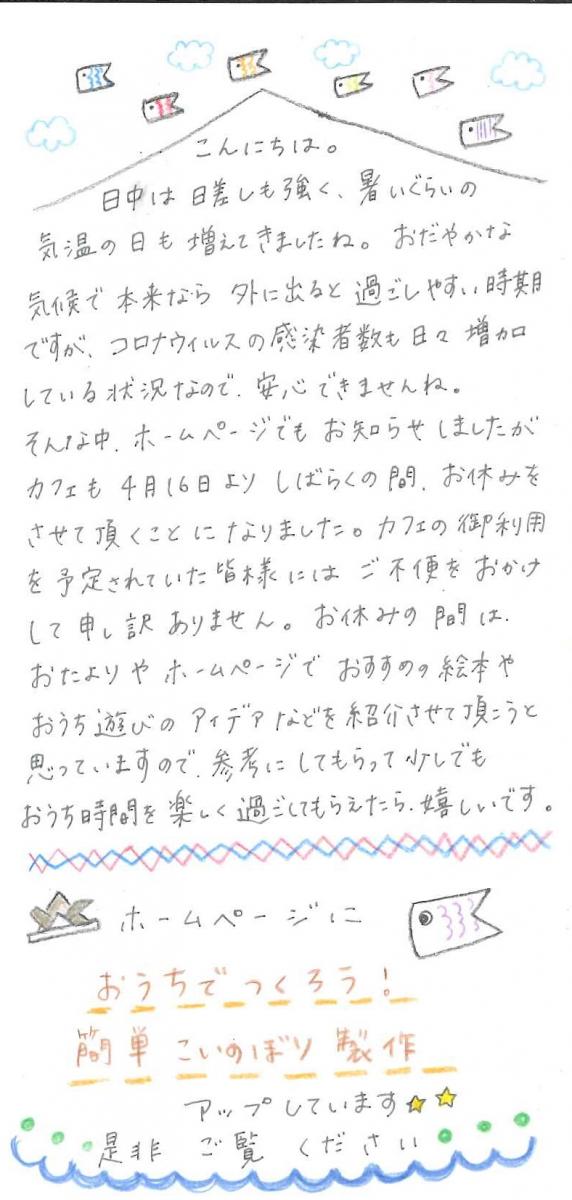 こんにちは。
日中は日差しも強く、暑いぐらいの
気温の日も増えてきましたね。おだやかな
気候で本来なら外に出ると過ごしやすい時期
ですが、コロナウィルスの感染者数も日々増加
している状況なので、安心できませんね。
そんな中、ホームページでもお知らせしましたが
カフェも4月16日よりしばらくの間、お休みを
させて頂くことになりました。カフェの御利用
を予定されていた皆様にはご不便をおかけ
して申し訳ありません。お休みの間は、
おたよりやホームページでおすすめの絵本や
おうち遊びのアイデアなどを紹介させて頂こうと
思っていますので、参考にしてもらって少しでも
おうち時間を楽しく過ごしてもらえたら、嬉しいです。
ホームページに
おうちでつくろう!
簡単こいのぼり製作
アップしています
是非ご覧ください